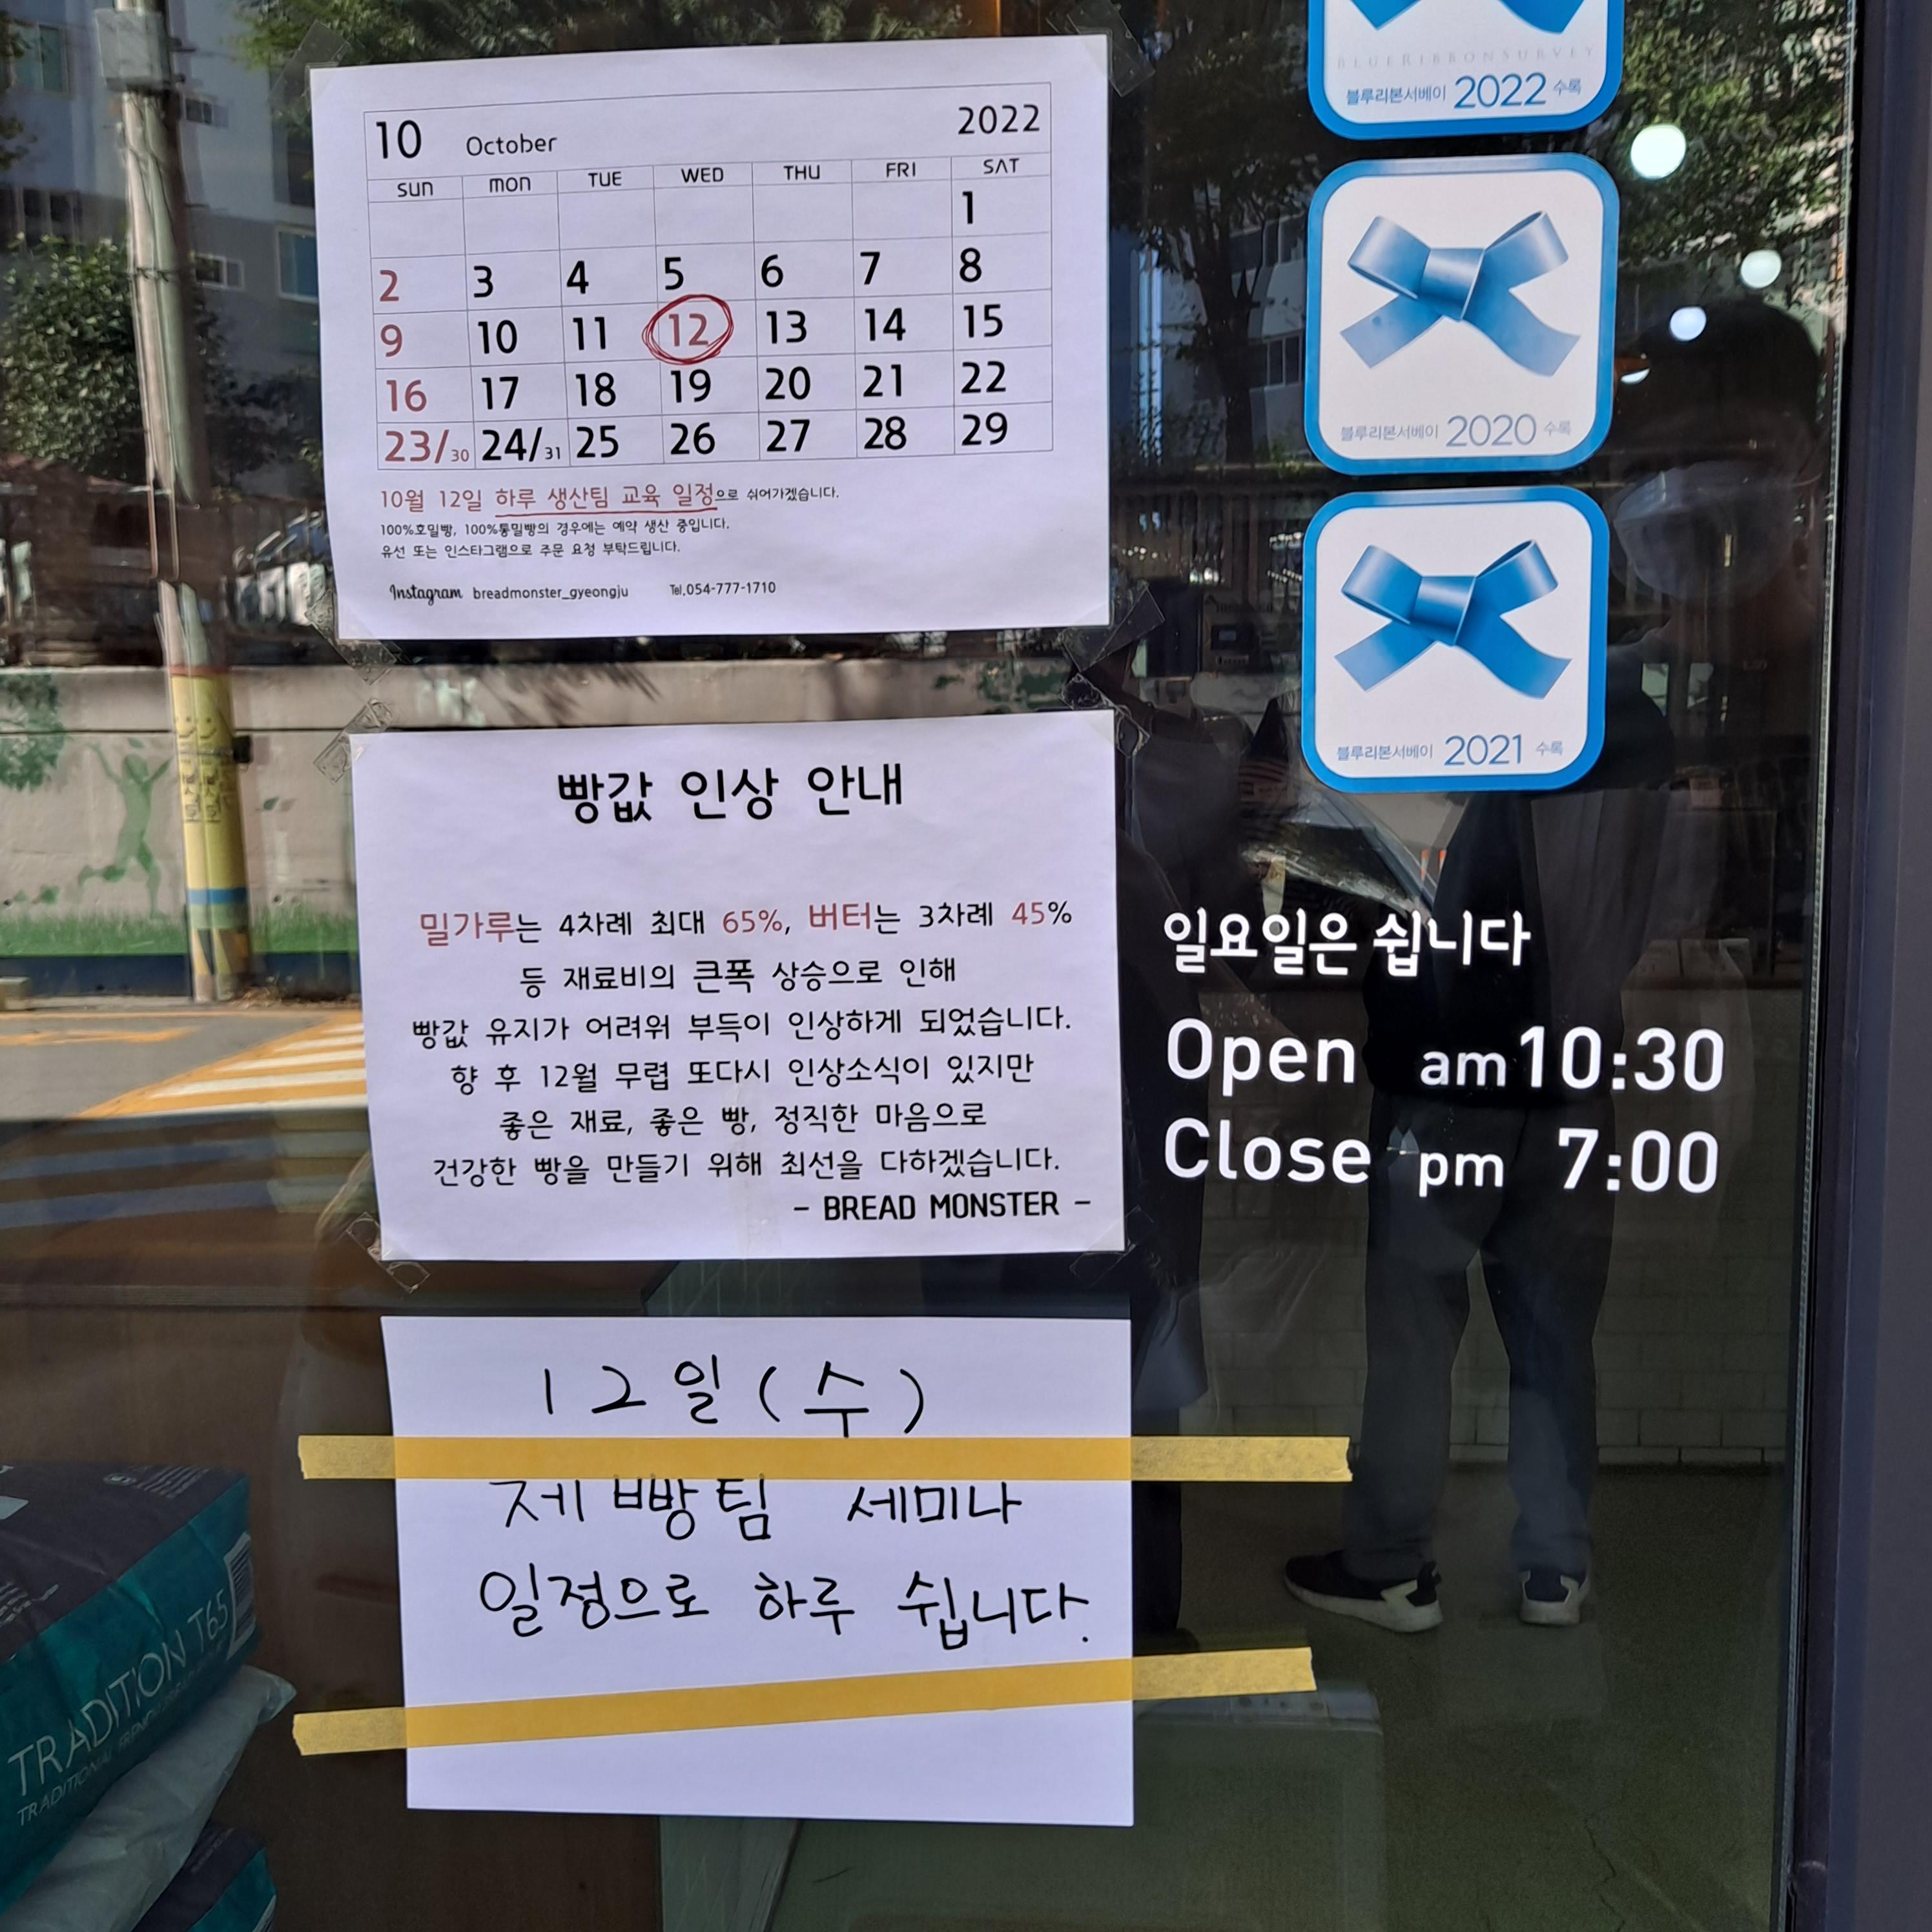 10 October 2022
SUN MON TUE WED THU FRI SAT
1
2 3 4 5 6 7 8
9 10 11 12 13 14 15
16 17 18 19 20 21 22
23/30 24/31 25 26 27 28 29
10월 12일 하루 생산팀 교육 일정으로 쉬어가겠습니다.
100%호밀빵, 100%통밀빵의 경우에는 예약 생산 중입니다.
유선 또는 인스타그램으로 주문 요청 부탁드립니다.
Instagram breadmonster_gyeongju Tel.054-777-1710
빵값 인상 안내
밀가루는 4차례 최대 65%, 버터는 3차례 45%
등 재료비의 큰폭 상승으로 인해
빵값 유지가 어려워 부득이 인상하게 되었습니다.
향 후 12월 무렵 또다시 인상소식이 있지만
좋은 재료, 좋은 빵, 정직한 마음으로
건강한 빵을 만들기 위해 최선을 다하겠습니다.
- BREAD MONSTER -
12일(수)
제빵팀 세미나
일정으로 하루 쉽니다.
BLUERIBBONSURVEY
블루리본서베이 2022 수록
블루리본서베이 2020 수록
블루리본서베이 2021 수록
일요일은 쉽니다
Open am 10:30
Close pm 7:00
TRADITION T65